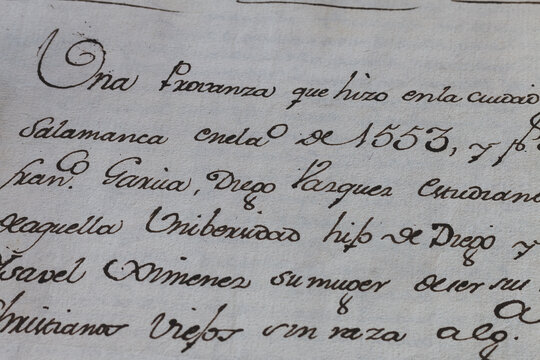 Una Provanza que hizo en la cuidad
Salamanca en el aº de 1553, y
Franᶜᵒ. Garcia, Diego Vazquez estudian
de aquella Unibersidad hijo de Diego y
Ysavel Ximenez su muger de ser su
Christianos viejos sin raza alg.ᵃ